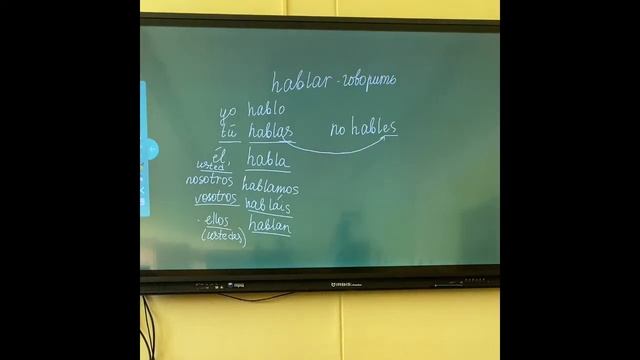 hablar - говорить
yo hablo
tú hablas no hables
él, usted habla
nosotros hablamos
vosotros habláis
ellos (ustedes) hablan